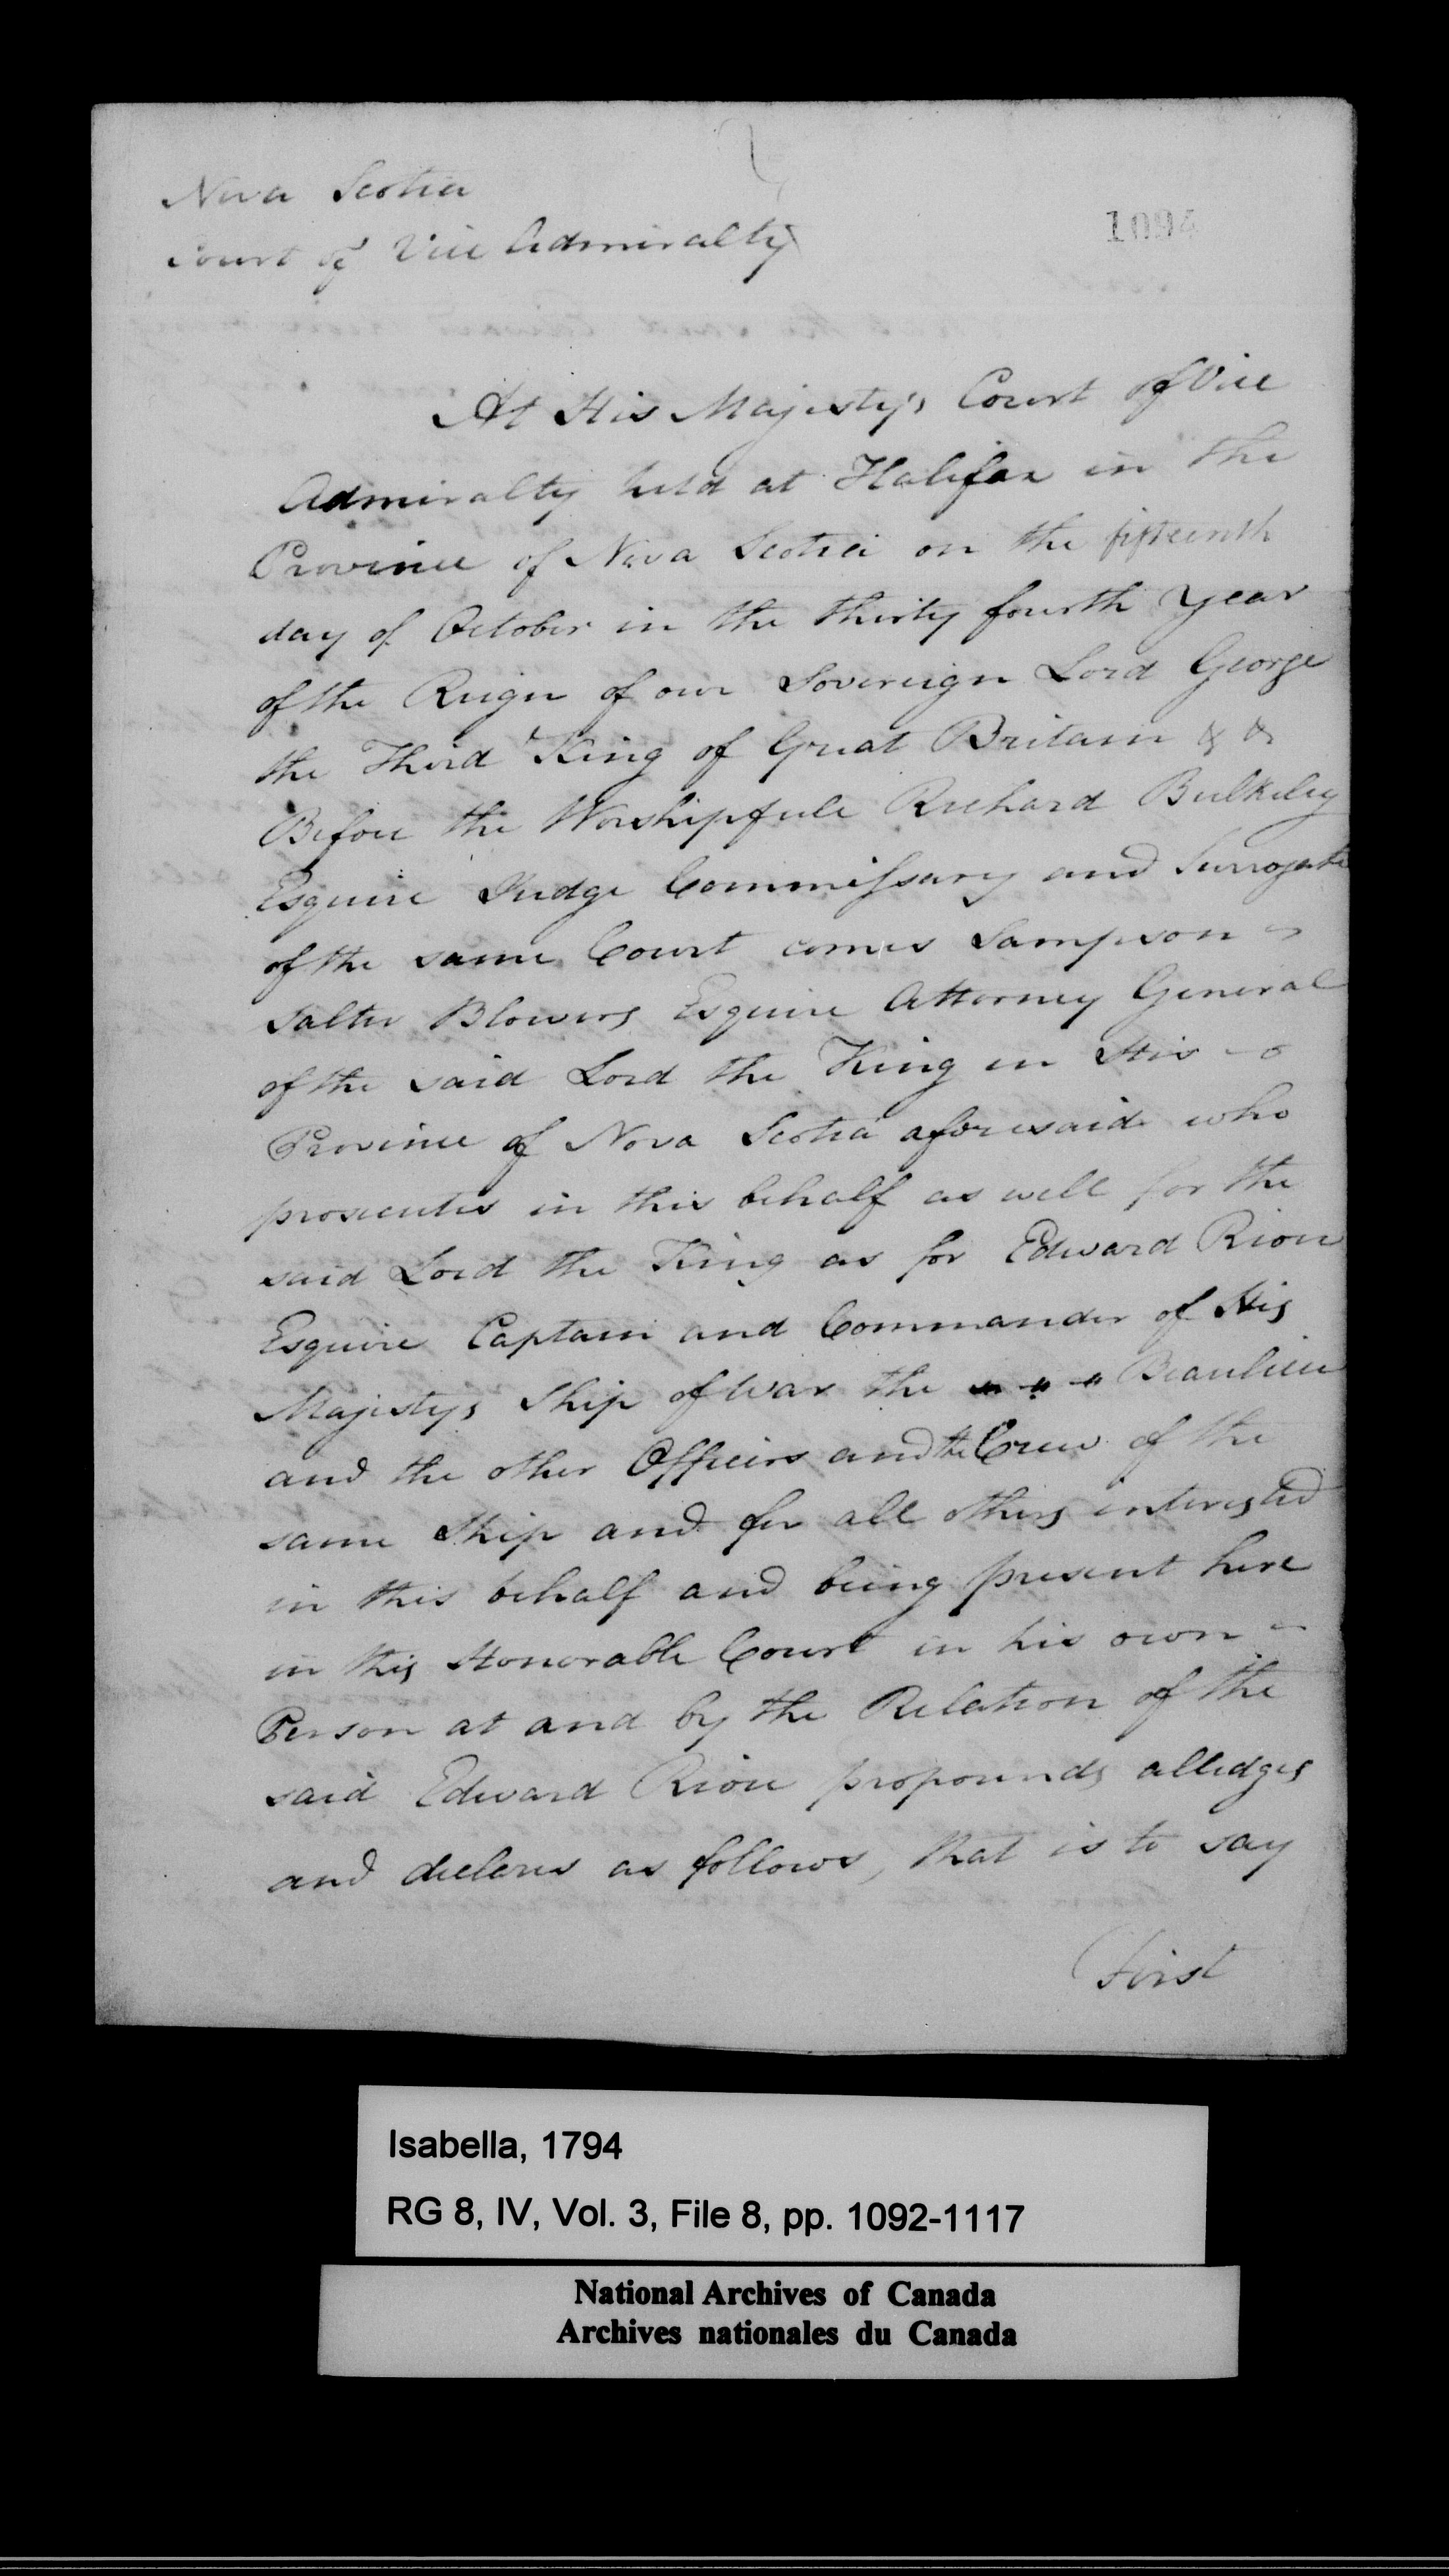 Nova Scotia
Court of Vice Admiralty
1094
At His Majesty's Court of Vice
Admiralty held at Halifax in the
Province of Nova Scotia on the fifteenth
day of October in the thirty fourth Year
of the Reign of our Sovereign Lord George
the Third King of Great Britain & &
Before the Worshipfull Richard Bulkeley
Esquire Judge Commissary and Surrogate
of the same Court comes Sampson
Salter Blowers Esquire Attorney General
of the said Lord the King in His
Province of Nova Scotia aforesaid who
prosecutes in this behalf as well for the
said Lord the King as for Edward Riou
Esquire Captain and Commander of His
Majestys Ship of War the Beaulieu
and the other Officers and the Crew of the
same Ship and for all others interested
in this behalf and being present here
in this Honorable Court in his own
Person at and by the Relation of the
said Edward Riou propounds alledges
and declares as follows, that is to say
First
Isabella, 1794
RG 8, IV, Vol. 3, File 8, pp. 1092-1117
National Archives of Canada
Archives nationales du Canada